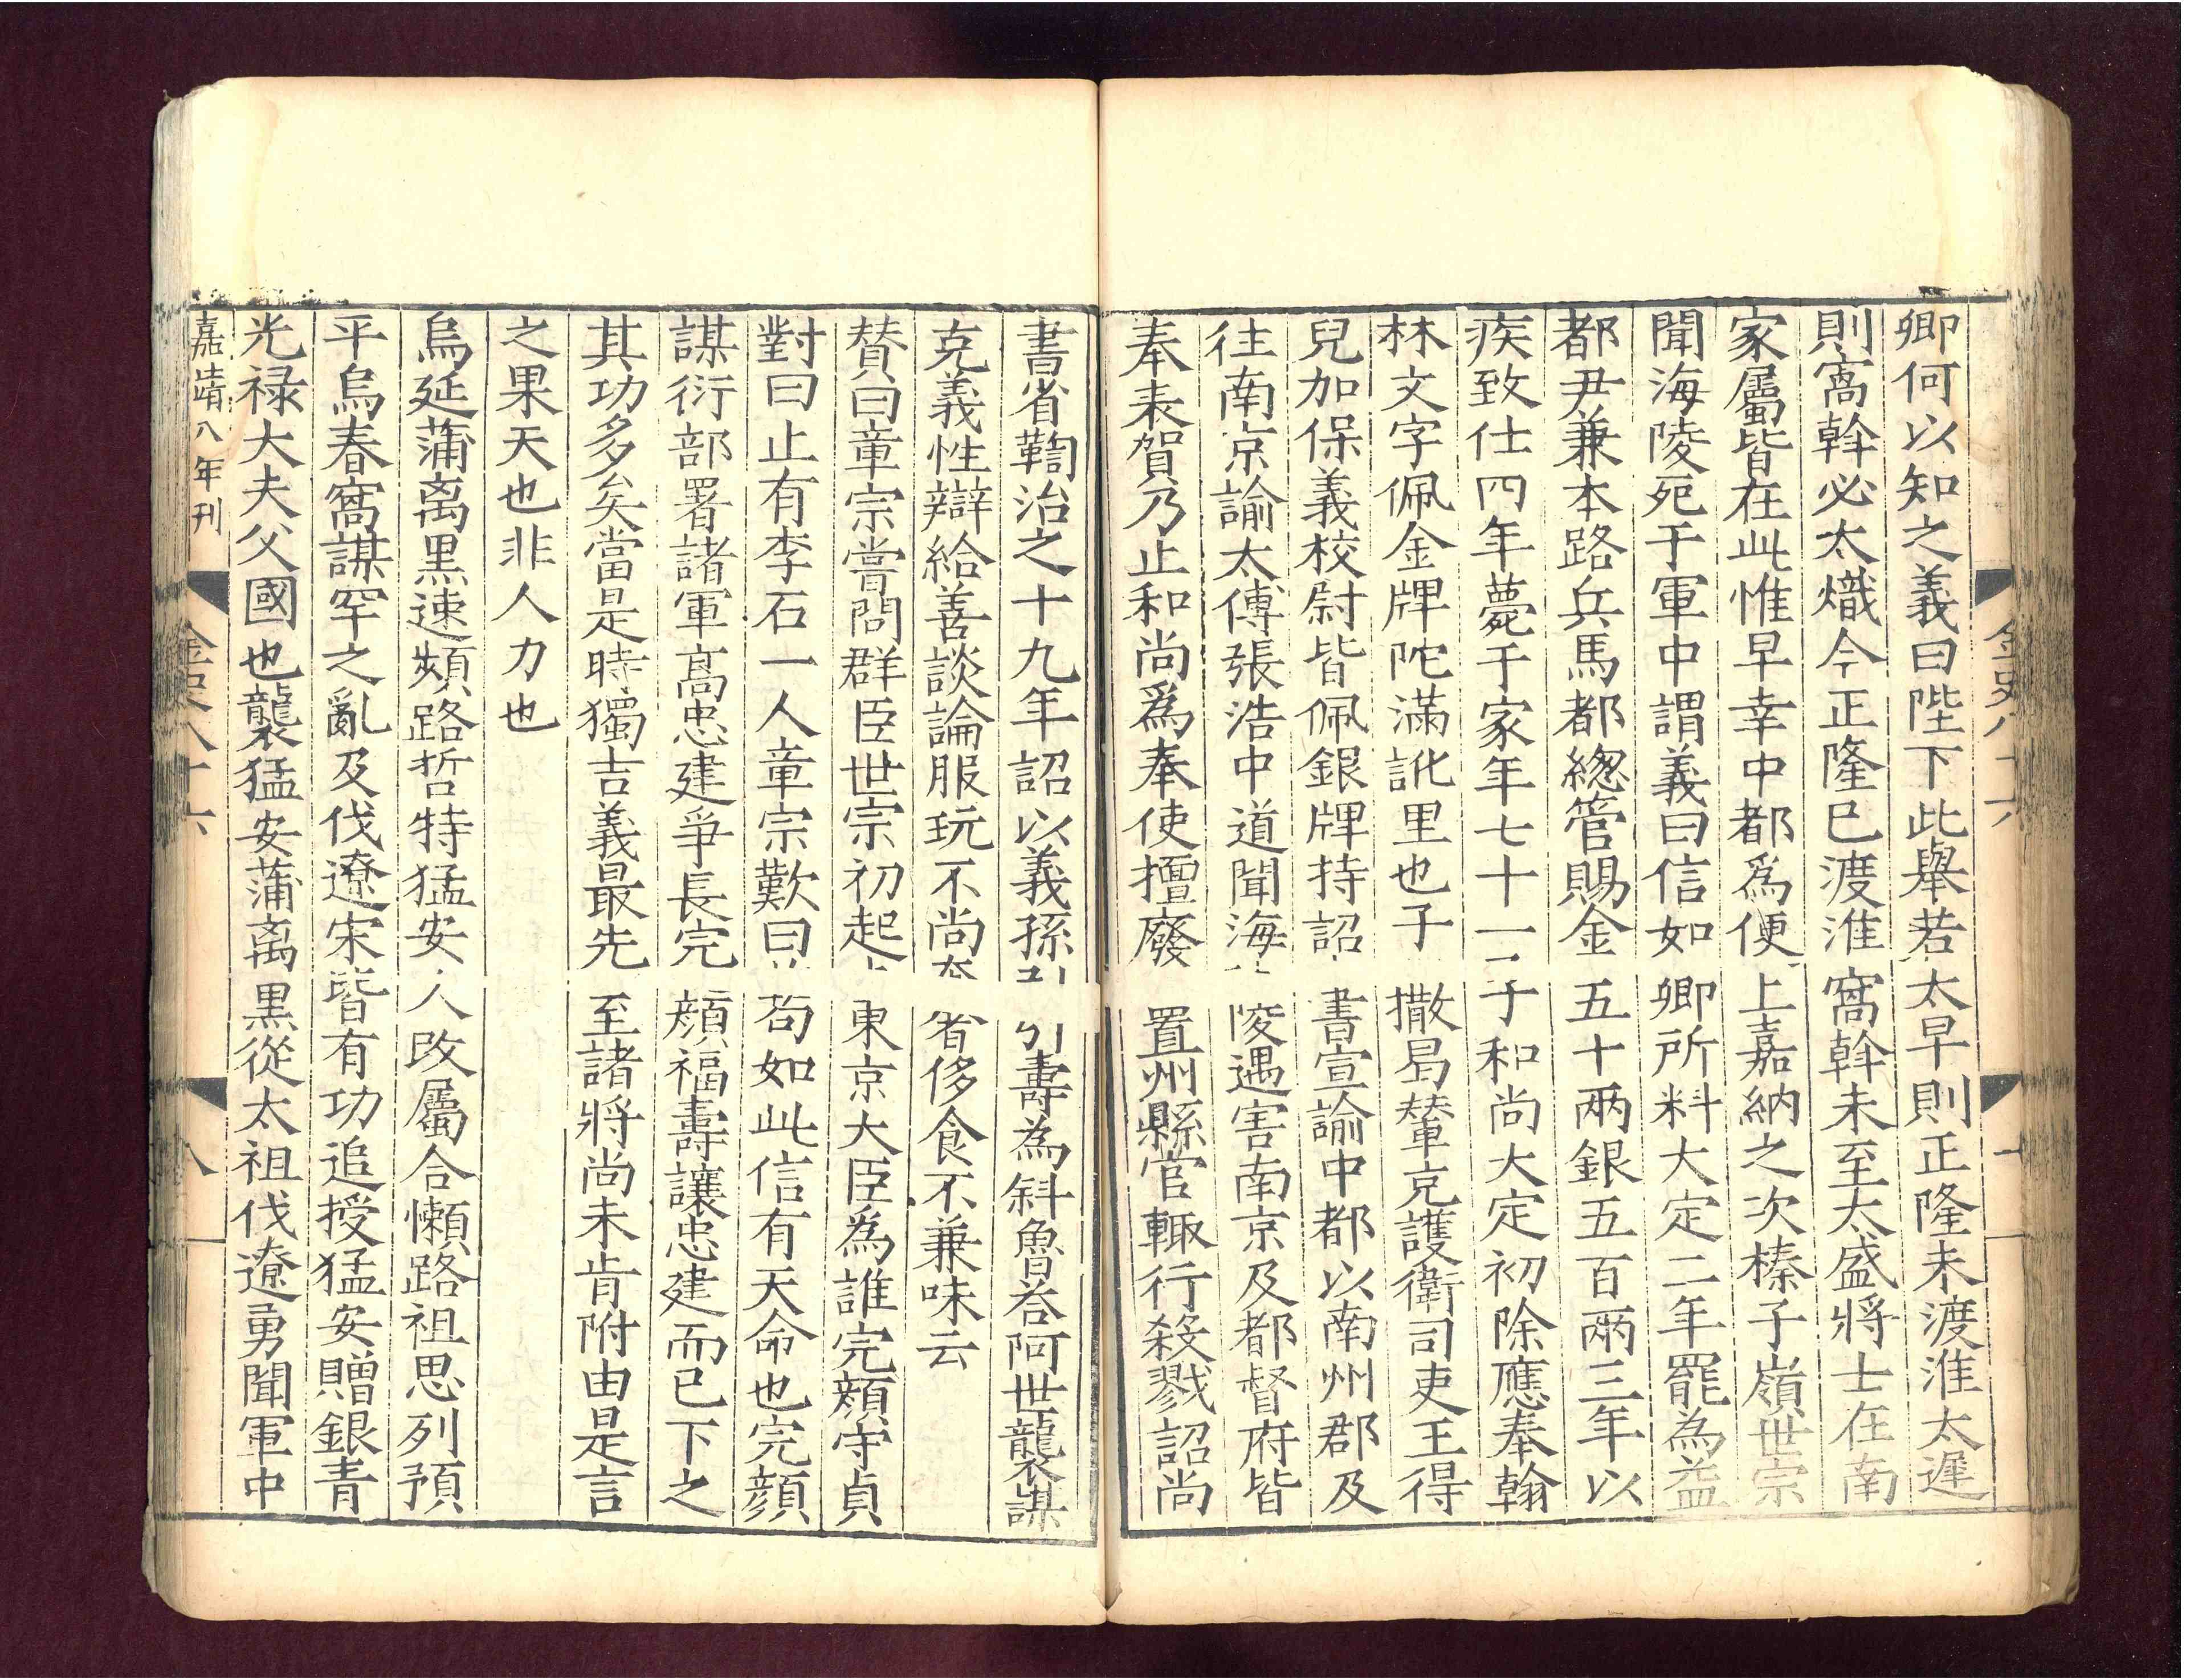 金史八十六
卿何以知之義曰陛下此舉若太早則正隆未渡淮太遲
則窩斡必太熾今正隆已渡淮窩斡未至太盛將士在南
家屬皆在此惟早幸中都爲便上嘉納之次榛子嶺世宗
聞海陵死于軍中謂義曰信如卿所料大定二年罷為益
都尹兼本路兵馬都緫管賜金五十兩銀五百兩三年以
疾致仕四年薨于家年七十一子和尚大定初除應奉翰
林文字佩金牌陀滿訛里也子撒曷輦充護衛司吏王得
兒加保義校尉皆佩銀牌持詔書宣諭中都以南州郡及
往南京諭太傅張浩中道聞海陵遇害南京及都督府皆
奉表賀乃止和尚爲奉使擅廢置州縣官輙行殺戮詔尚
書省鞫治之十九年詔以義孫引壽為斜魯荅阿世襲謀
克義性辯給善談論服玩不尚奢侈食不兼味云
賛曰章宗嘗問群臣世宗初起東京大臣為誰完顔守貞
對曰止有李石一人章宗歎曰苟如此信有天命也完顔
謀衍部署諸軍髙忠建爭長完顔福壽讓忠建而已下之
其功多矣當是時獨吉義最先至諸將尚未肯附由是言
之果天也非人力也
烏延蒲离黒速頻路哲特猛安人改屬合懶路祖思列預
平烏春窩謀罕之亂及伐遼宋皆有功追授猛安贈銀青
光禄大夫父國也襲猛安蒲离黒從太祖伐遼勇聞軍中
嘉靖八年刊
金史八十六
八